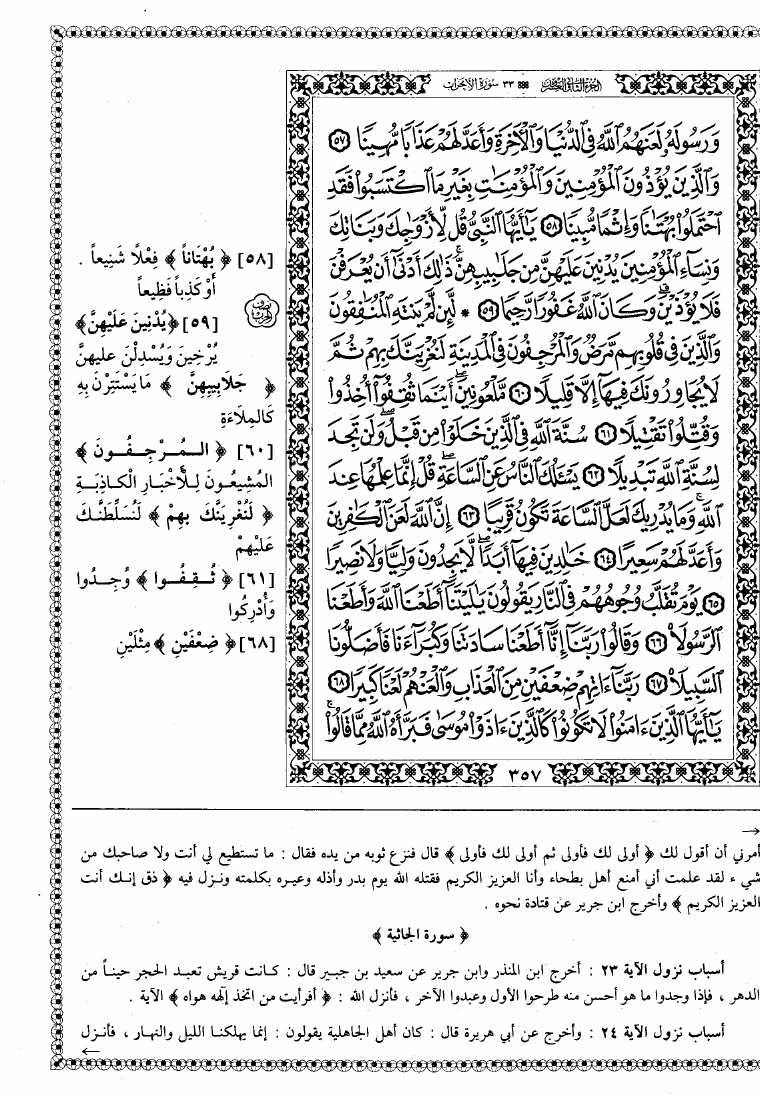 الجزء الثاني والعشرون ٣٣ سورة الأحزاب
وَرَسُولَهُۥ لَعَنَهُمُ ٱللَّهُ فِى ٱلدُّنْيَا وَٱلْءَاخِرَةِ وَأَعَدَّ لَهُمْ عَذَابًا مُّهِينًا ٥٧
وَٱلَّذِينَ يُؤْذُونَ ٱلْمُؤْمِنِينَ وَٱلْمُؤْمِنَٰتِ بِغَيْرِ مَا ٱكْتَسَبُوا۟ فَقَدِ
ٱحْتَمَلُوا۟ بُهْتَٰنًا وَإِثْمًا مُّبِينًا ٥٨ يَٰٓأَيُّهَا ٱلنَّبِىُّ قُل لِّأَزْوَٰجِكَ وَبَنَاتِكَ
وَنِسَآءِ ٱلْمُؤْمِنِينَ يُدْنِينَ عَلَيْهِنَّ مِن جَلَٰبِيبِهِنَّ ۚ ذَٰلِكَ أَدْنَىٰٓ أَن يُعْرَفْنَ
فَلَا يُؤْذَيْنَ ۗ وَكَانَ ٱللَّهُ غَفُورًا رَّحِيمًا ٥٩ * لَّئِن لَّمْ يَنتَهِ ٱلْمُنَٰفِقُونَ
وَٱلَّذِينَ فِى قُلُوبِهِم مَّرَضٌ وَٱلْمُرْجِفُونَ فِى ٱلْمَدِينَةِ لَنُغْرِيَنَّكَ بِهِمْ ثُمَّ
لَا يُجَاوِرُونَكَ فِيهَآ إِلَّا قَلِيلًا ٦٠ مَّلْعُونِينَ ۖ أَيْنَمَا ثُقِفُوٓا۟ أُخِذُوا۟
وَقُتِّلُوا۟ تَقْتِيلًا ٦١ سُنَّةَ ٱللَّهِ فِى ٱلَّذِينَ خَلَوْا۟ مِن قَبْلُ ۖ وَلَن تَجِدَ
لِسُنَّةِ ٱللَّهِ تَبْدِيلًا ٦٢ يَسْـَٔلُكَ ٱلنَّاسُ عَنِ ٱلسَّاعَةِ ۖ قُلْ إِنَّمَا عِلْمُهَا عِندَ
ٱللَّهِ ۚ وَمَا يُدْرِيكَ لَعَلَّ ٱلسَّاعَةَ تَكُونُ قَرِيبًا ٦٣ إِنَّ ٱللَّهَ لَعَنَ ٱلْكَٰفِرِينَ
وَأَعَدَّ لَهُمْ سَعِيرًا ٦٤ خَٰلِدِينَ فِيهَآ أَبَدًا ۖ لَّا يَجِدُونَ وَلِيًّا وَلَا نَصِيرًا
٦٥ يَوْمَ تُقَلَّبُ وُجُوهُهُمْ فِى ٱلنَّارِ يَقُولُونَ يَٰلَيْتَنَآ أَطَعْنَا ٱللَّهَ وَأَطَعْنَا
ٱلرَّسُولَا۠ ٦٦ وَقَالُوا۟ رَبَّنَآ إِنَّآ أَطَعْنَا سَادَتَنَا وَكُبَرَآءَنَا فَأَضَلُّونَا
ٱلسَّبِيلَا۠ ٦٧ رَبَّنَآ ءَاتِهِمْ ضِعْفَيْنِ مِنَ ٱلْعَذَابِ وَٱلْعَنْهُمْ لَعْنًا كَبِيرًا ٦٨
يَٰٓأَيُّهَا ٱلَّذِينَ ءَامَنُوا۟ لَا تَكُونُوا۟ كَٱلَّذِينَ ءَاذَوْا۟ مُوسَىٰ فَبَرَّأَهُ ٱللَّهُ مِمَّا قَالُوا۟ ۚ
٣٥٧
[٥٨] ﴿ بُهْتَاناً ﴾ فِعْلاً شَنِيعاً .
أَوْ كَذِباً فَظِيعاً
[٥٩] ﴿يُدْنِينَ عَلَيْهِنَّ﴾
يُرْخِينَ وَيُسْدِلْنَ عليهنَّ
﴿ جَلَابِيبِهِنَّ ﴾ مَا يَسْتَتِرْنَ بِهِ
كَالمِلَاءَةِ
[٦٠] ﴿ الـمُـرْجِفُـونَ ﴾
المُشِيعُـونَ لِـلْأَخْبَـارِ الْكَـاذِبَـةِ
﴿ لَنُغْرِيَنَّكَ بِهِمْ ﴾ لَنُسَلِّطَنَّـكَ
عَلَيْهِمْ
[٦١] ﴿ ثُـقِـفُـوا ﴾ وُجِـدُوا
وَأُدْرِكُوا
[٦٨] ﴿ ضِعْفَيْنِ ﴾ مِثْلَيْنِ
→
أمرني أن أقول لك ﴿ أولى لك فأولى ثم أولى لك فأولى ﴾ قال فنزع ثوبه من يده فقال : ما تستطيع لي أنت ولا صاحبك من
شيء لقد علمت أني أمنع أهل بطحاء وأنا العزيز الكريم فقتله الله يوم بدر وأذله وعيره بكلمته ونـزل فيه ﴿ ذق إنـك أنت
العزيز الكريم ﴾ وأخرج ابن جرير عن قتادة نحوه .
﴿ سورة الجاثية ﴾
أسباب نزول الآية ٢٣ : أخرج ابن المنذر وابن جرير عن سعيد بن جبير قال : كـانت قريش تعبـد الحجر حينـاً من
الدهر ، فإذا وجدوا ما هو أحسن منه طرحوا الأول وعبدوا الآخر ، فأنزل الله : ﴿ أفرأيت من اتخذ إلٰهه هواه ﴾ الآية .
أسباب نزول الآية ٢٤ : وأخرج عن أبي هريرة قال : كان أهل الجاهلية يقولون : إنما يهلكنـا الليل والنهـار ، فأنـزل
←